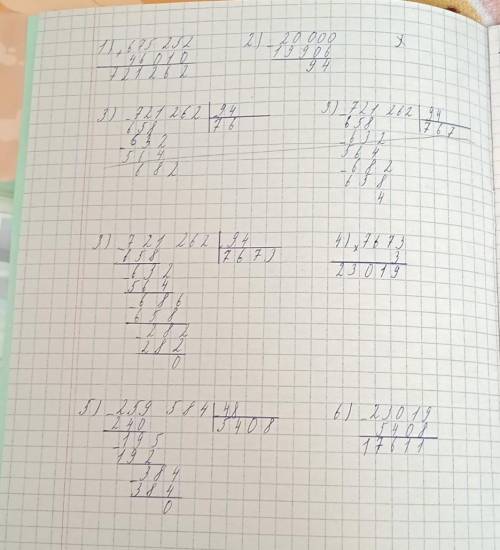 1) + 675 252
46010
721262
2) - 20 000
19906
94
3) - 721 262 | 94
658 | 76
- 632
564
682
3) - 721 262 | 94
658 | 767
- 632
564
- 682
658
4
3) - 721 262 | 94
658 | 7673
- 632
564
- 686
658
- 282
282
0
4) × 7673
3
23019
5) - 259 584 | 48
240 | 5408
- 195
192
- 384
384
0
6) - 23019
5408
17611